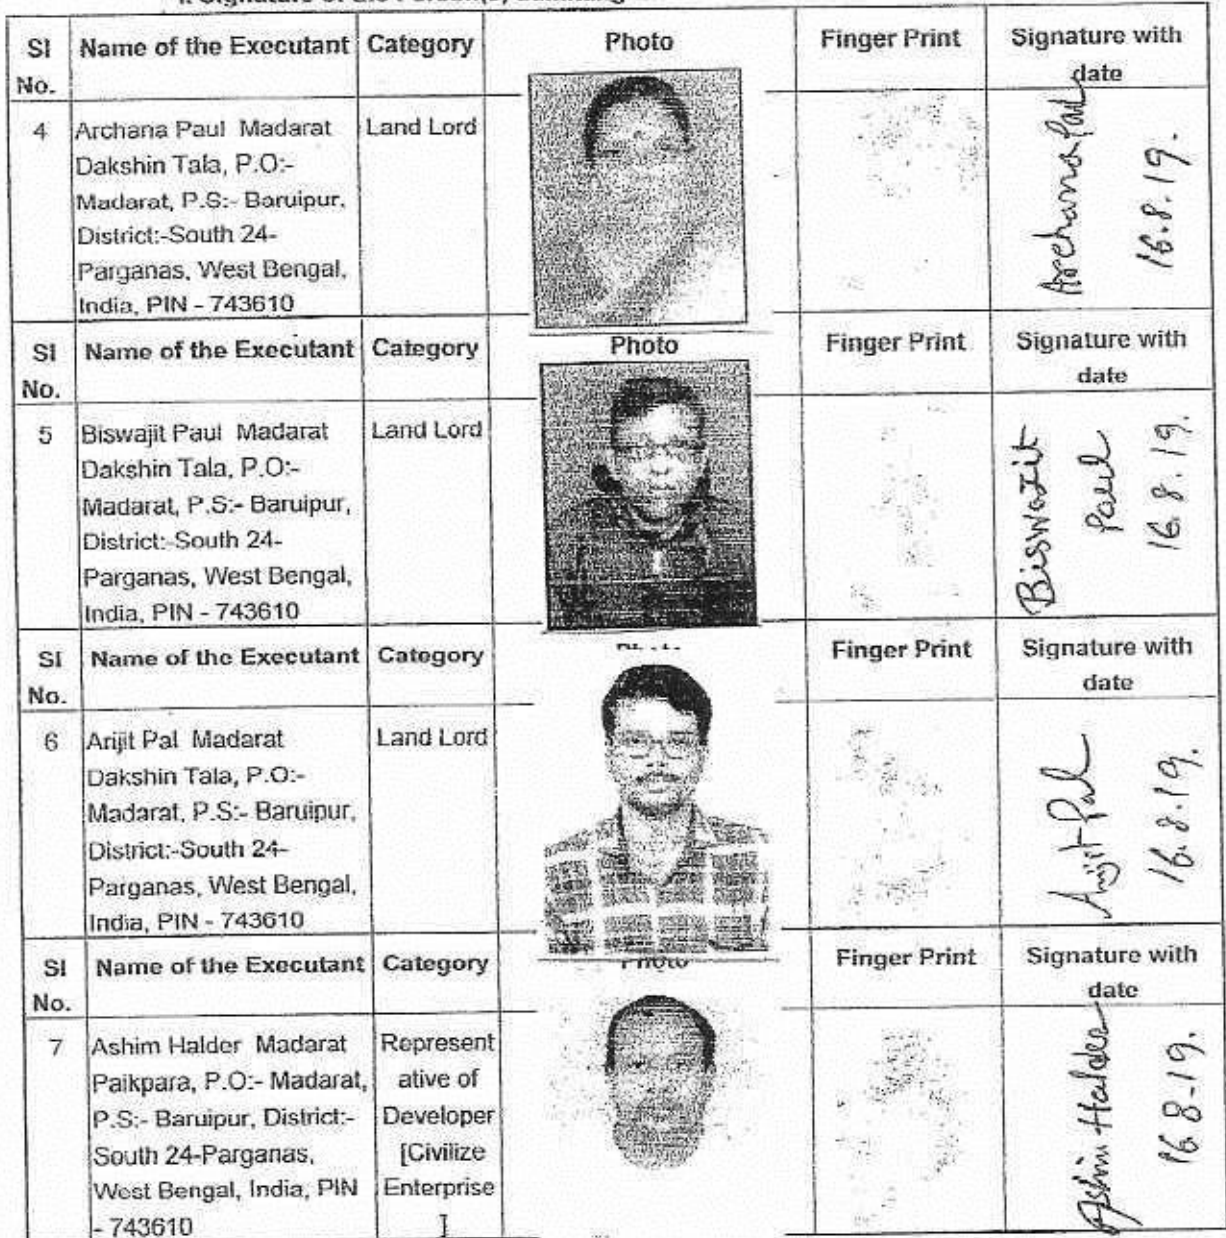 I. Signature of the Person(s) admitting
Sl No. Name of the Executant Category Photo Finger Print Signature with date
4 Archana Paul Madarat Land Lord
Dakshin Tala, P.O:-
Madarat, P.S:- Baruipur,
District:-South 24-
Parganas, West Bengal,
India, PIN - 743610
Archana Paul
16.8.19.
Sl No. Name of the Executant Category Photo Finger Print Signature with date
5 Biswajit Paul Madarat Land Lord
Dakshin Tala, P.O:-
Madarat, P.S:- Baruipur,
District:-South 24-
Parganas, West Bengal,
India, PIN - 743610
Biswajit
Paul
16.8.19.
Sl No. Name of the Executant Category Photo Finger Print Signature with date
6 Arijit Pal Madarat Land Lord
Dakshin Tala, P.O:-
Madarat, P.S:- Baruipur,
District:-South 24-
Parganas, West Bengal,
India, PIN - 743610
Arijit Pal
16.8.19.
Sl No. Name of the Executant Category Photo Finger Print Signature with date
7 Ashim Halder Madarat Represent
Paikpara, P.O:- Madarat, ative of
P.S:- Baruipur, District:- Developer
South 24-Parganas, [Civilize
West Bengal, India, PIN Enterprise
- 743610 ]
Ashim Halder
16 8-19.